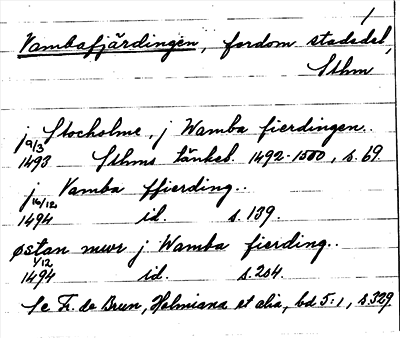 1
Vambafjärdingen, fordom stadsdel,
Sthm
j Stocholme, j Wamba fierdingen..
9/3
1493 Sthms tänkeb. 1492-1500, s. 69.
j Vamba ffierding..
16/12
1494 id. s. 139.
østan mwr j Wamba fierding..
1/12
1494 id. s. 204.
Se Fr. de Brun, Holmiana et alia, bd 5:1, s. 329.